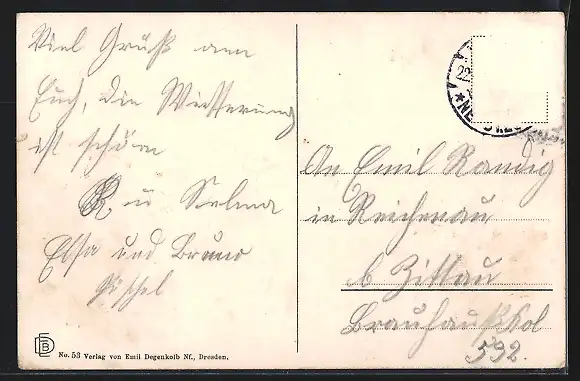 Viel Grüß an
Euch, die Witterung
ist schön
u Selma
Elsa und Bruno
An Emil Randig
in Reichenau
b Zittau
592.
22.
DEB
No. 53 Verlag von Emil Degenkolb Nf., Dresden.